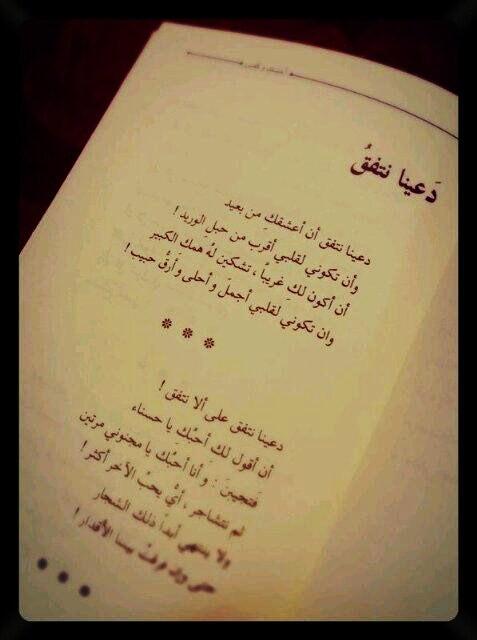 دَعينا نتفقُ
دعينا نتفق أن أعشقكِ من بعيد
وأن تكوني لقلبي أقرب من حبلِ الوريد !
أن أكون لكِ غريبًا ، تشكين لهُ همك الكبير
وان تكوني لقلبي أجملَ و أحلى و أرقُّ حبيب !
* * *
دعينا نتفق على ألا نتفق !
أن أقول لك أحبُّكِ يا حسناء
فتجيبينَ : و أنا أحبُّك يا مجنوني مرتين
ثم نتشاجر ، أيُّ يحبُّ الآخر أكثر !
ولا ينتهي أبداً ذلك الشجار
حتى وإن فرقتْ بيننا الأقدار !
* * *